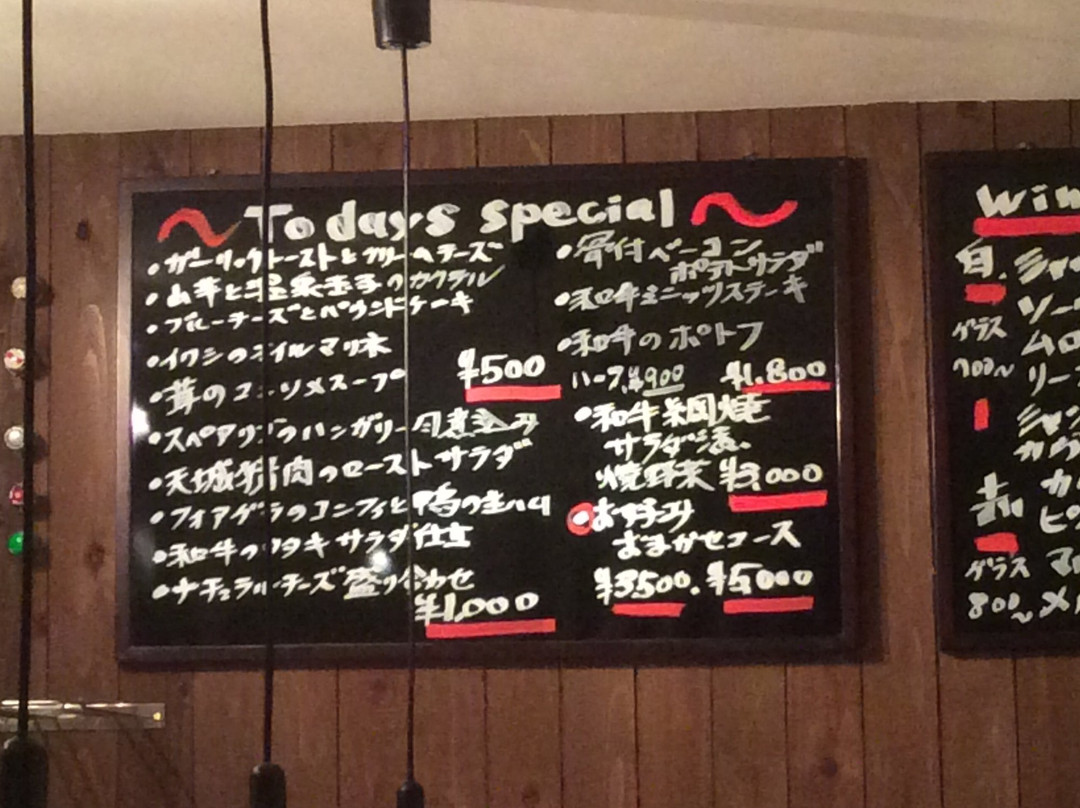 Todays special
・ガーリックトーストとクリームチーズ
・山芋と温泉玉子のカクテル
・ブルーチーズとパウンドケーキ
・イワシのオイルマリネ
・茸のコンソメスープ
¥500
・スペアリブのハンガリー風煮込み
・天城猪肉のローストサラダ
・フォアグラのコンフィと鴨の生ハム
・和牛のタタキサラダ仕立
・ナチュラルチーズ盛り合わせ
¥1,000
・骨付ベーコン
ポテトサラダ
・和牛ミニッツステーキ
・和牛のポトフ
ハーフ¥900 ¥1,800
・和牛網焼
サラダ添
焼野菜 ¥3,000
・お手軽
おまかせコース
¥3,500. ¥5,000
Win
白.
グラス
700~
シャ
ソー
ムロ
リー
シャン
カヴ
赤
グラス
800~
カ
ピ
マル
メル